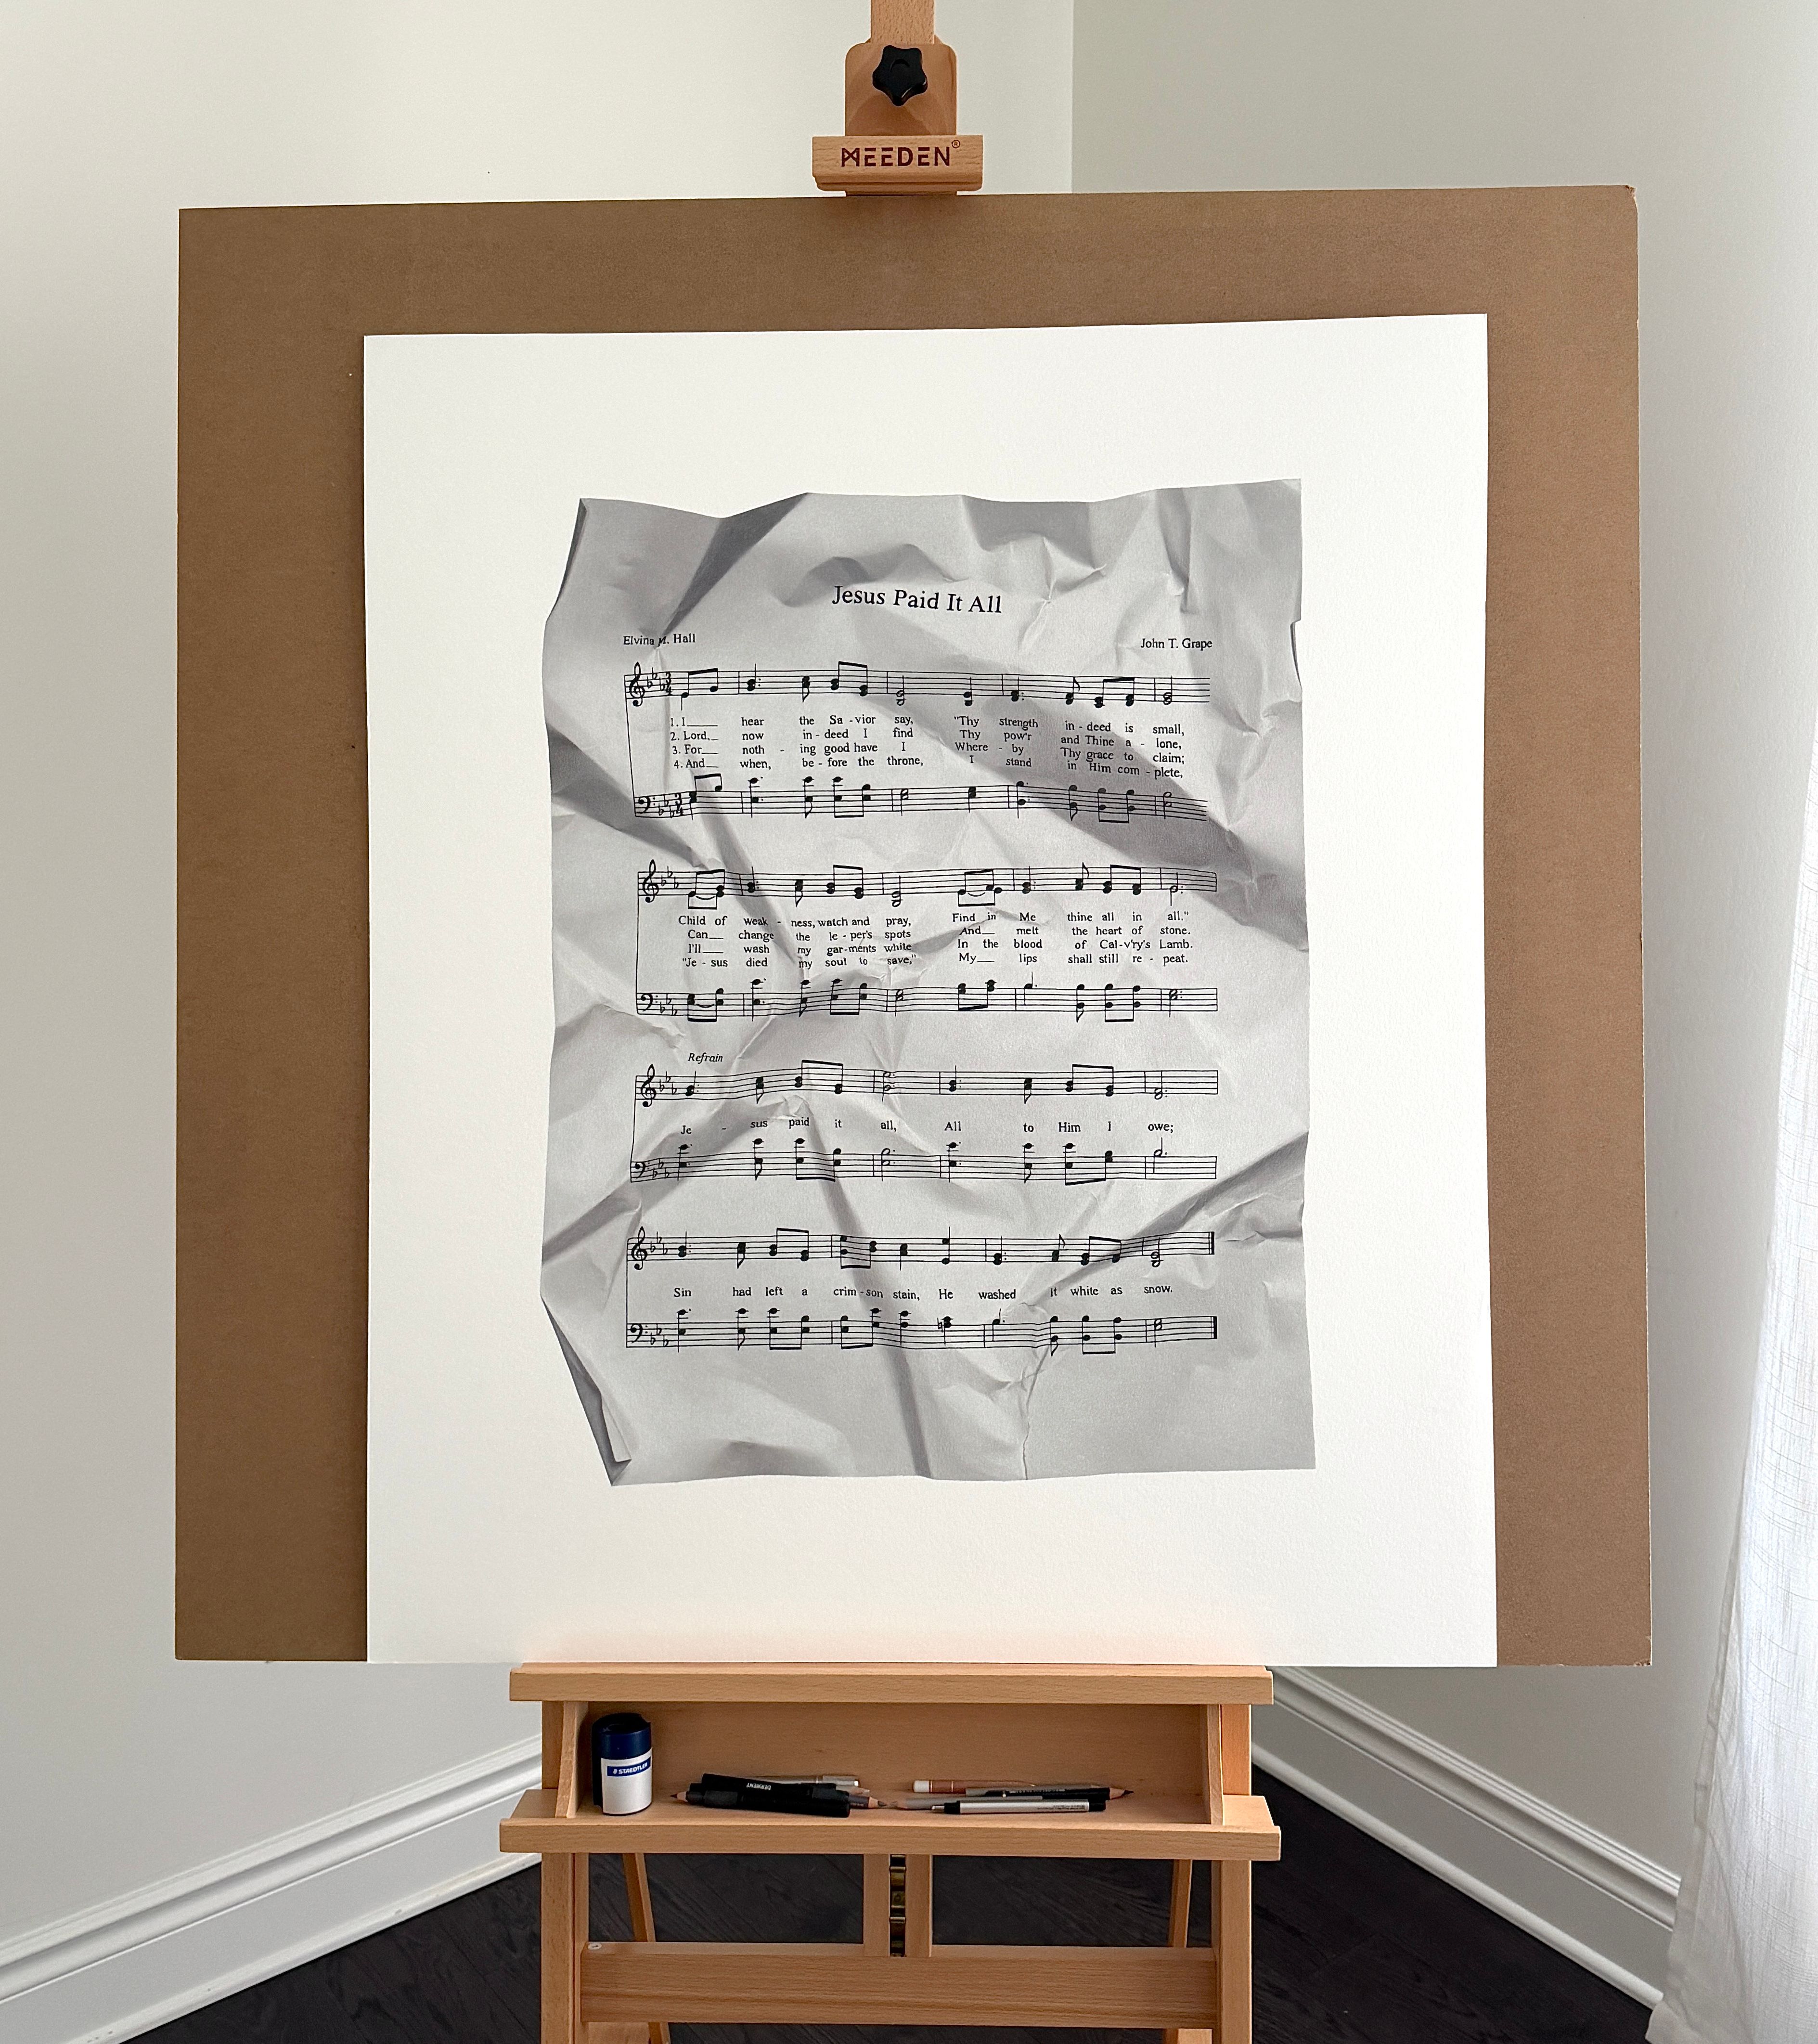 MEEDEN®
Jesus Paid It All
Elvina M. Hall
John T. Grape
3 4
1. I___ hear the Sa - vior say, "Thy strength in - deed is small,
2. Lord,_ now in - deed I find Thy pow'r and Thine a - lone,
3. For___ noth - ing good have I Where - by Thy grace to claim;
4. And___ when, be - fore the throne, I stand in Him com - plete,
3 4
Child of weak - ness, watch and pray, Find in Me thine all in all."
Can___ change the le - per's spots And___ melt the heart of stone.
I'll___ wash my gar - ments white In the blood of Cal - v'ry's Lamb.
"Je - sus died my soul to save," My___ lips shall still re - peat.
Refrain
Je - sus paid it all, All to Him I owe;
Sin had left a crim - son stain, He washed it white as snow.
STAEDTLER
DERWENT